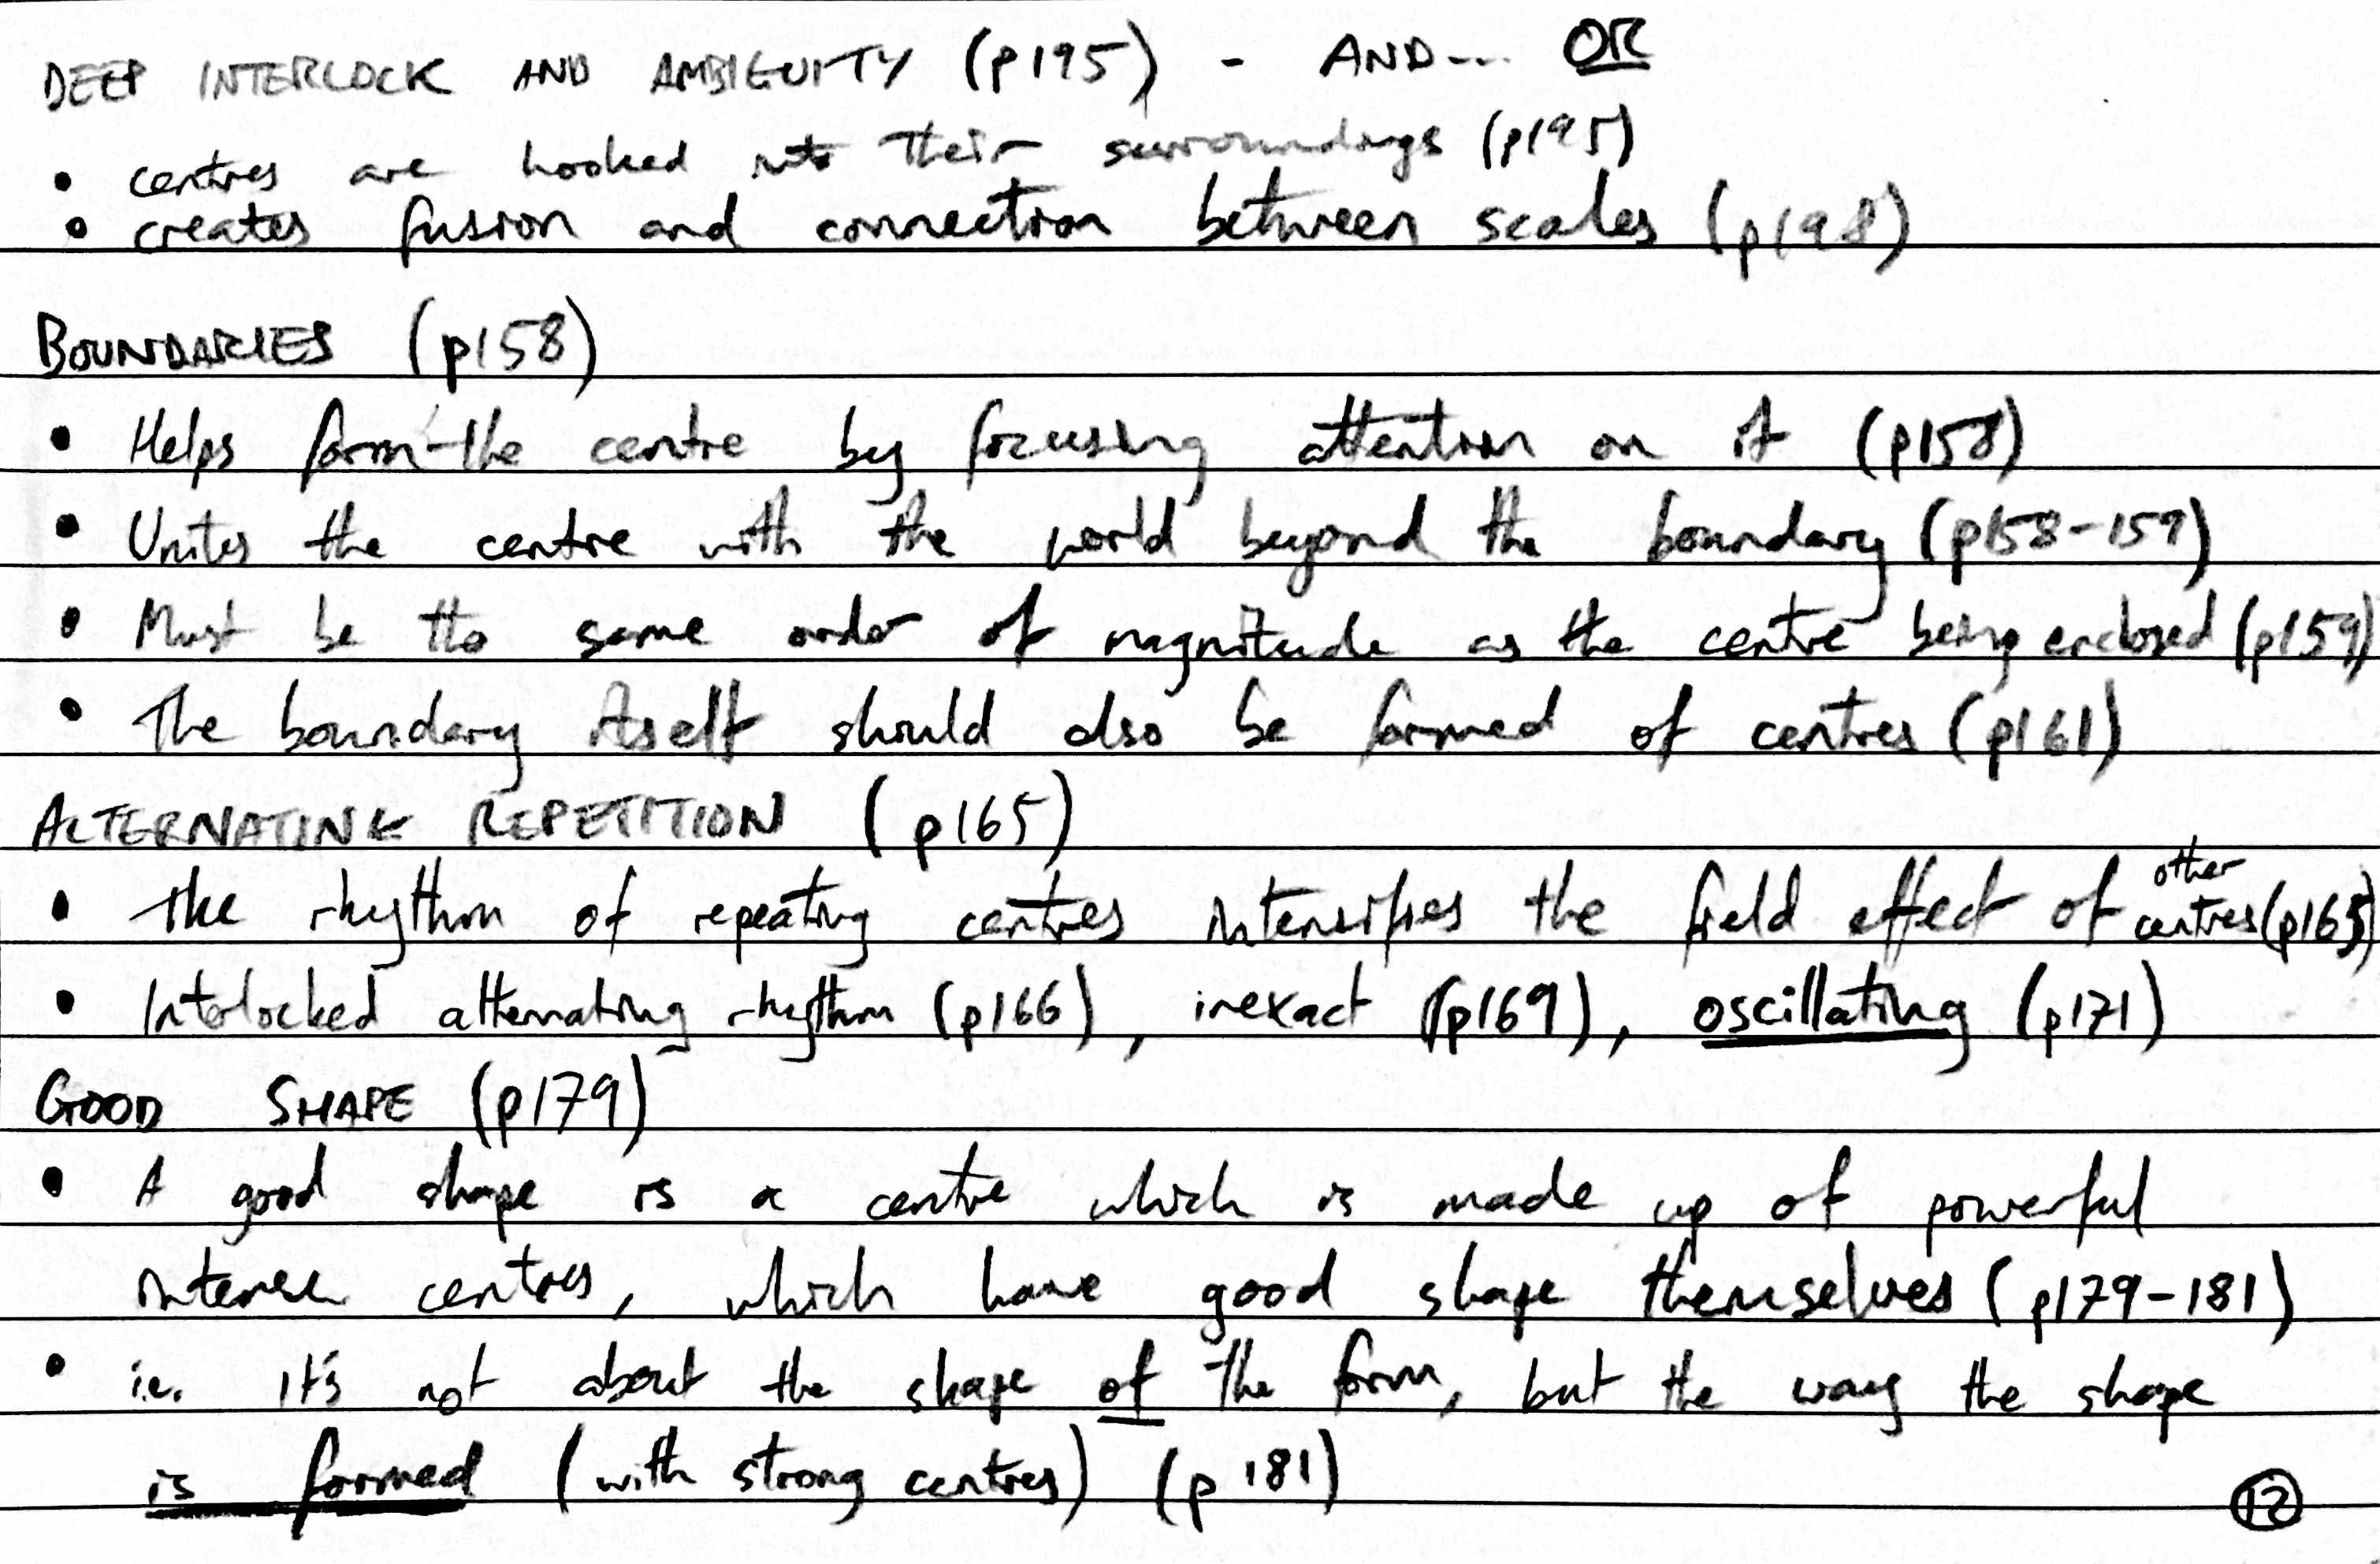 DEEP INTERLOCK AND AMBIGUITY (p195) - AND... OR
• centres are hooked into their surroundings (p195)
• creates fusion and connection between scales (p198)
BOUNDARIES (p158)
• Helps form the centre by focusing attention on it (p158)
• Unites the centre with the world beyond the boundary (p158-159)
• Must be the same order of magnitude as the centre being enclosed (p159)
• The boundary itself should also be formed of centres (p161)
ALTERNATING REPETITION (p165)
• The rhythm of repeating centres intensifies the field effect of other centres (p165)
• Interlocked alternating rhythm (p166), inexact (p169), oscillating (p171)
GOOD SHAPE (p179)
• A good shape is a centre which is made up of powerful
intense centres, which have good shape themselves (p179-181)
• i.e. it's not about the shape of the form, but the way the shape
is formed (with strong centres) (p181)
12